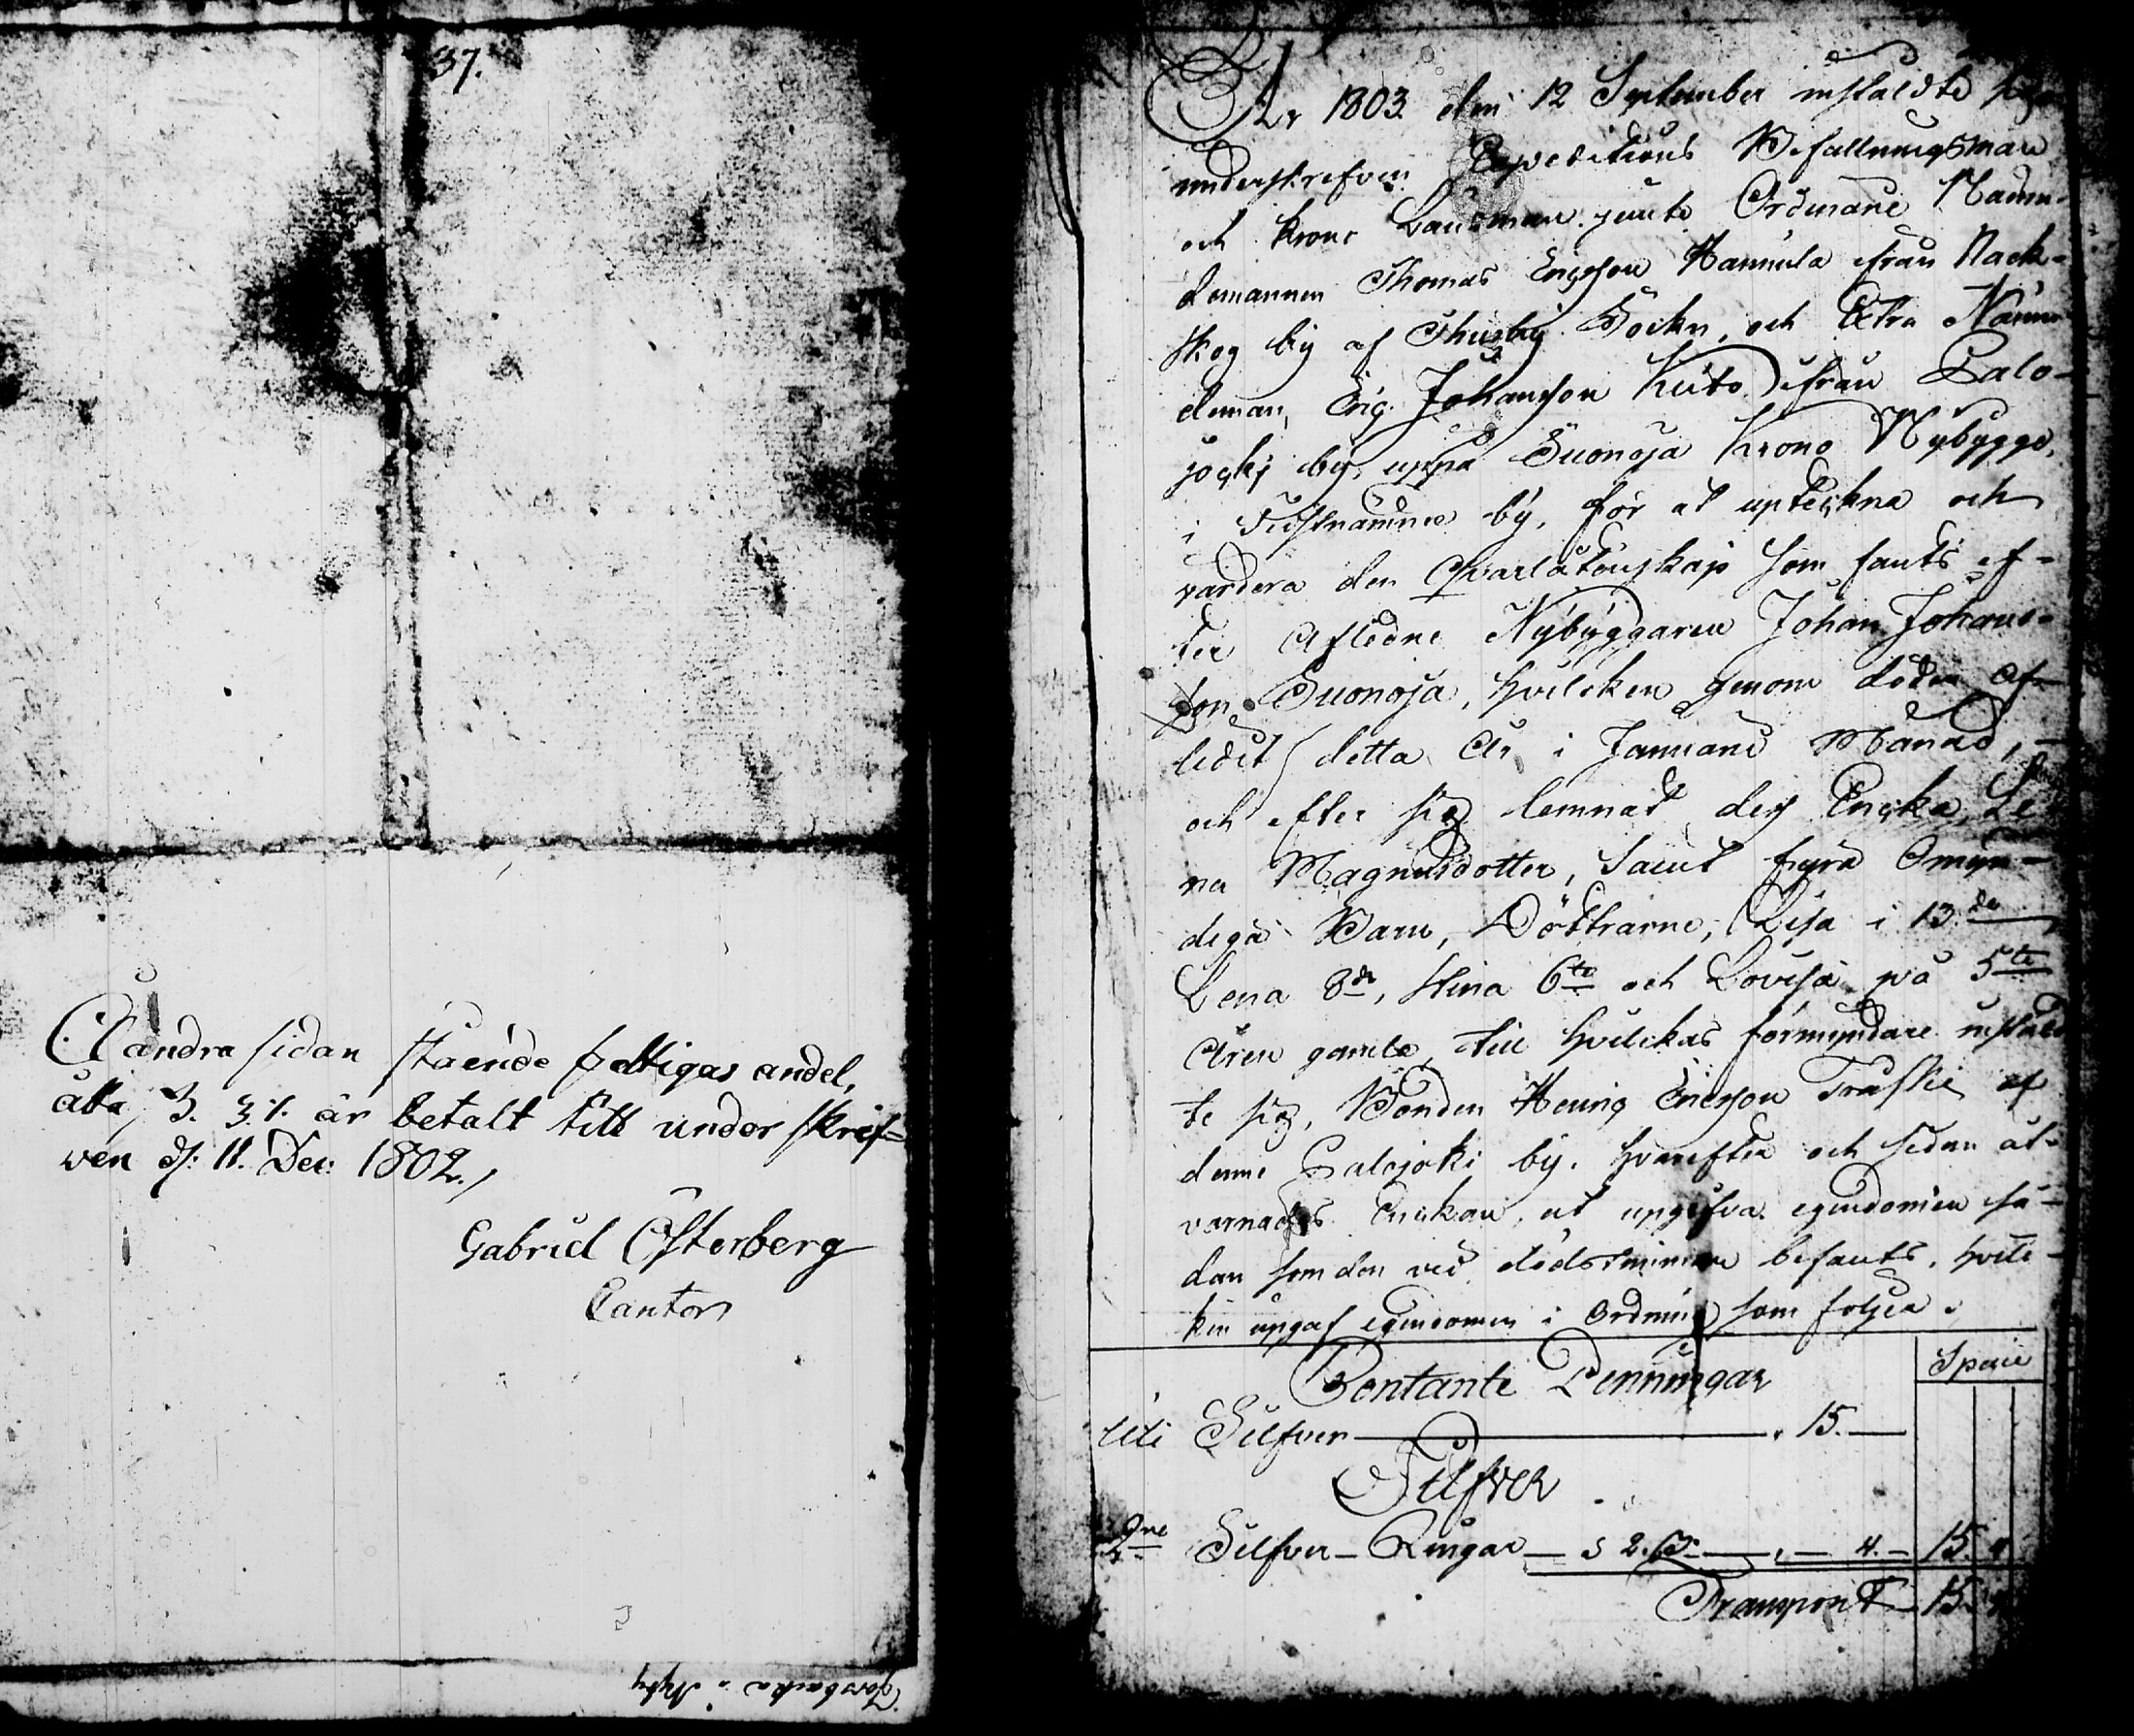 37.
Å andra sidan stående fattigas andel,
åtta ß. 3 r/. är betalt till underskrif=
ven d: 11. Dec: 1802./
Gabriel Österberg
Cantor
Forsbacka i Nyby
År 1803 den 12 September instälde
underskrefven Expeditions Befallningsman
och Krono Länsman jemte Ordinarie Nämn-
demannen Thomas Ericsson Hannula ifrån Nack-
skog by af Thusby Sockn, och Extra Nämn
deman, Eric Johansson Keito ifrån Palo-
jocki by, uppå Suonoja Krono Nybygge,
i sistnämnde by, för at upteckna och
värdera den Qvarlåtenskap som fants ef-
ter Afledne Nybyggaren Johan Johans-
son Suonoja, hvilcken genom döden Af-
ledit detta År i Januarii Månad, -
och efter sig lemnat dess Encka, Le
na Magnusdotter, samt fyra Omyn-
diga Barn, Döttrarne, Lisa i 13.de
Lena 8de, Stina 6te och Lovisa på 5te
Åren gamla, till hvilckas förmyndare instäld
te sig, Bonden Henric Ericsson Träskie af
denne Palojoki by. hvarefter och sedan åt-
varnades Enckan, at upgifva egendomen så-
dan som den vid dödstimmen befants, hvil-
ken upgaf egendomen i Ordning som följer.
Contante Penningar
Specie
uti Silfver 15.
Silfver
2ne Silfver Ringar 2. ß. 4. 15. 4
Transport 15.